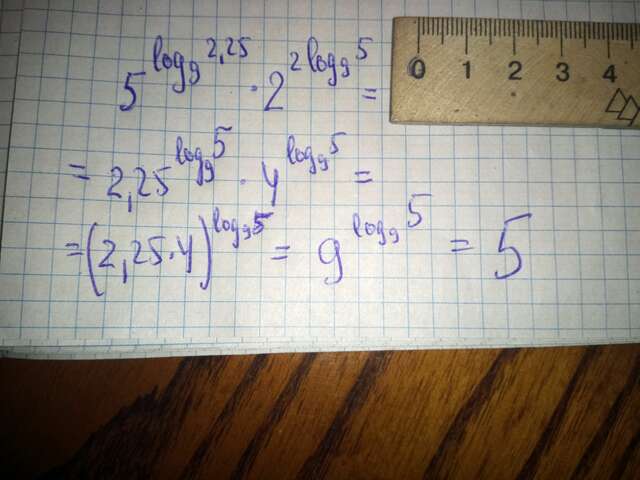 5^{log_9 2,25} · 2^{2 log_9 5} =
= 2,25^{log_9 5} · 4^{log_9 5} =
= (2,25·4)^{log_9 5} = 9^{log_9 5} = 5
0 1 2 3 4